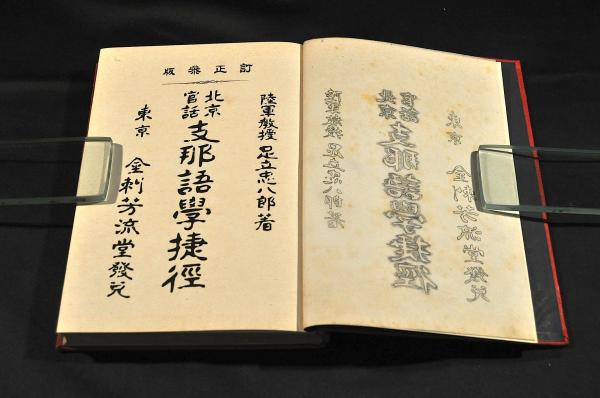 訂正版
陸軍教授 足立忠八郎著
北京
官話
支那語學捷徑
東京 金刺芳流堂發兌